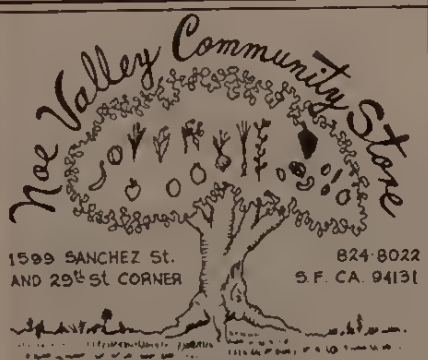 Noe Valley Community Store
1599 SANCHEZ St.
AND 29th St CORNER
824-8022
S.F. CA. 94131